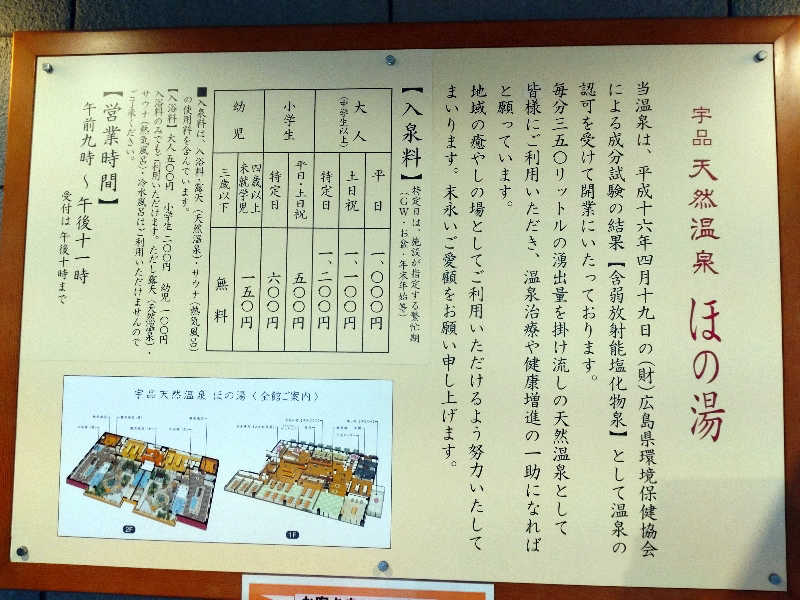 宇品 天然温泉 ほの湯
当温泉は、平成十六年四月十九日の(財)広島県環境保健協会
による成分試験の結果【含弱放射能塩化物泉】として温泉の
認可を受けて開業にいたっております。
毎分三五〇リットルの湧出量を掛け流しの天然温泉として
皆様にご利用いただき、温泉治療や健康増進の一助になれば
と願っています。
地域の癒やしの場としてご利用いただけるよう努力いたして
まいります。末永いご愛顧をお願い申し上げます。
【入泉料】
特定日は、施設が指定する繁忙期
(GW・お盆・年末年始等)
大人
(中学生以上)
平日 一、〇〇〇円
土日祝 一、一〇〇円
特定日 一、二〇〇円
小学生
平日・土日祝 五〇〇円
特定日 六〇〇円
幼児
四歳以上
未就学児 一五〇円
三歳以下 無料
■入泉料は、入浴料・露天(天然温泉)・サウナ(熱気風呂)
の使用料を含んでいます。
【入浴料】大人 五〇〇円 小学生 二〇〇円 幼児 一〇〇円
入浴料のみでもご利用いただけます。ただし露天(天然温泉)・
サウナ(熱気風呂)・冷水風呂はご利用いただけませんので
ご了承ください。
【営業時間】
午前九時 〜 午後十一時
受付は 午後十時まで
宇品天然温泉 ほの湯〈全館ご案内〉
2F
1F